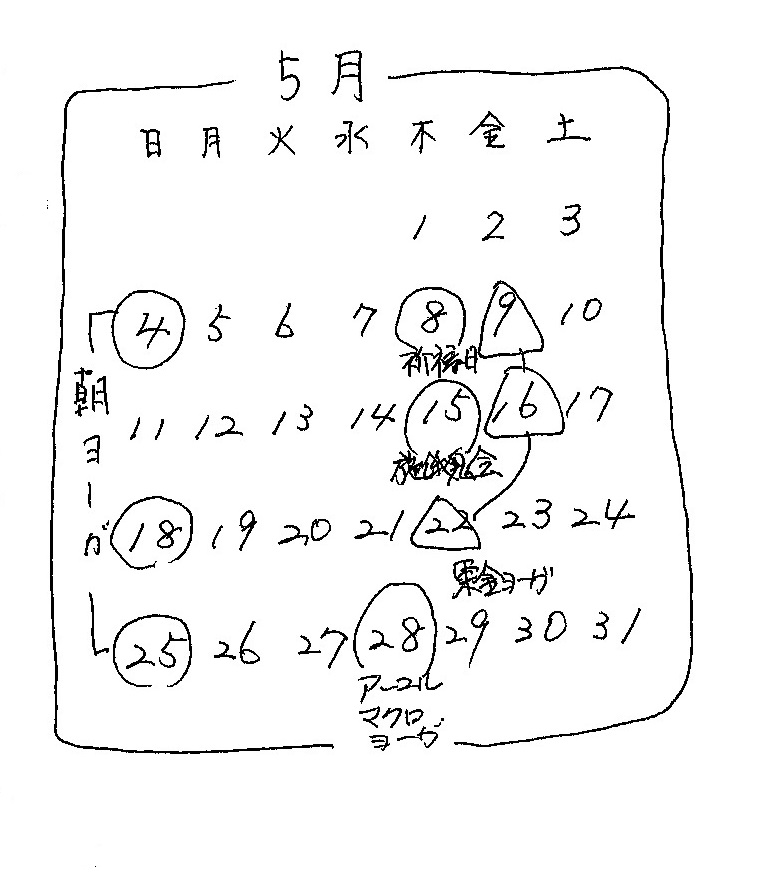 5月
日 月 火 水 木 金 土
1 2 3
4 5 6 7 8 9 10
祈祷日
朝ヨーガ
11 12 13 14 15 16 17
施餓鬼会
18 19 20 21 22 23 24
ヨーガ
25 26 27 28 29 30 31
アーユル
マクロ
ヨーガ